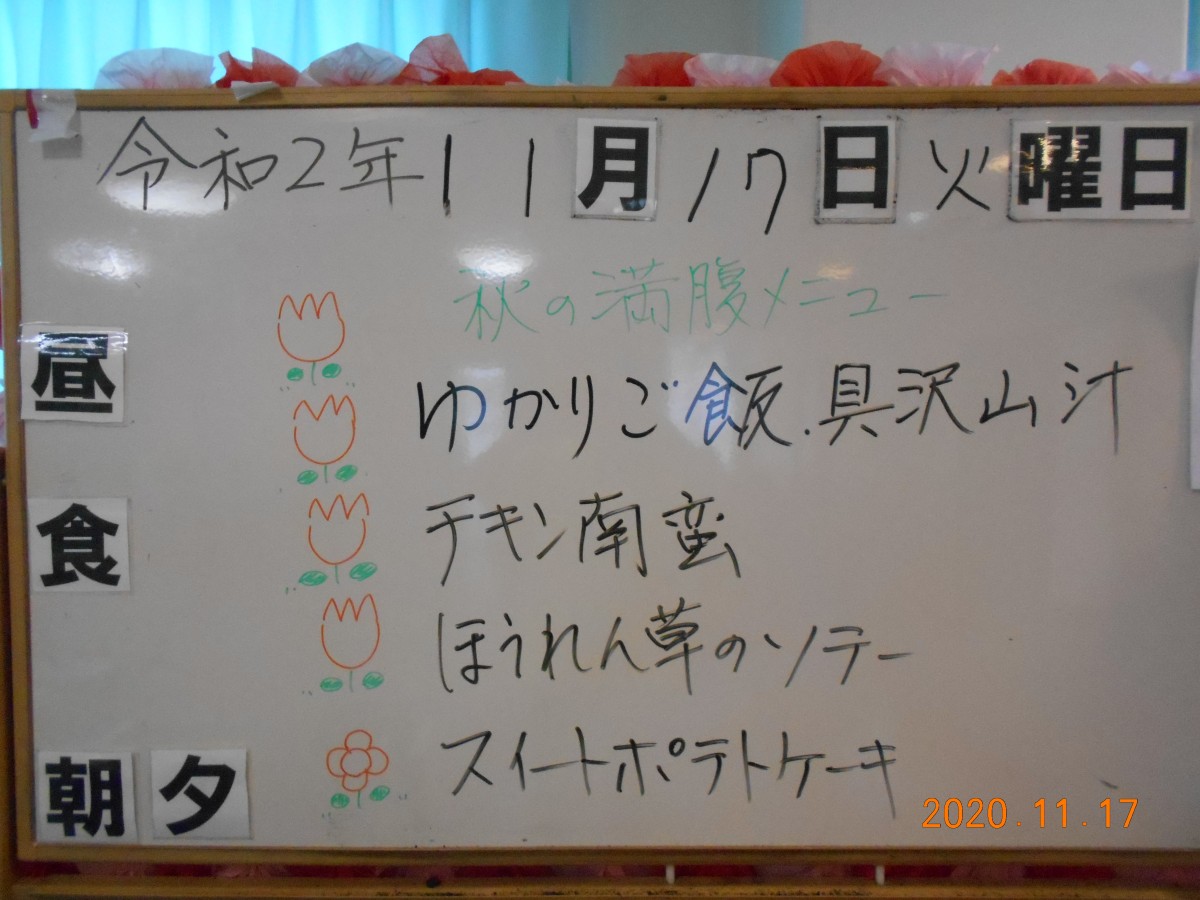 令和2年11月17日火曜日
秋の満腹メニュー
昼食
ゆかりご飯.具沢山汁
チキン南蛮
ほうれん草のソテー
スイートポテトケーキ
朝 夕
2020.11.17